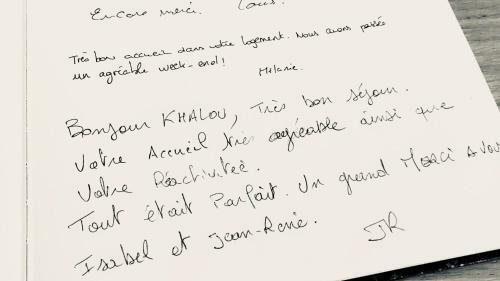 Encore merci. Louis.
Très bon accueil dans votre logement. Nous avons passé
un agréable week-end!
Mélanie.
Bonjour KHALOU, Très bon séjour.
Votre Accueil très agréable ainsi que
Votre Réactivitée.
Tout était Parfait. Un grand Merci a vous
Isabel et Jean-René.
JR